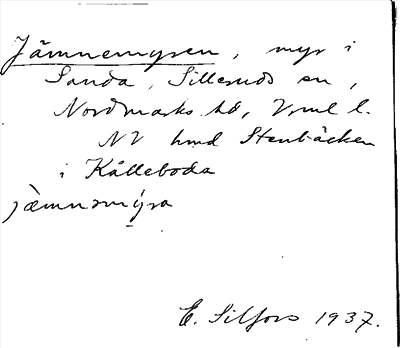 Jämnemyren, myr i
Sanda, Silleruds sn,
Nordmarks hd, Vrml l.
NV hmd Stenbäcken
i Kålleboda
jæmnəmýra
E. Silfors 1937.